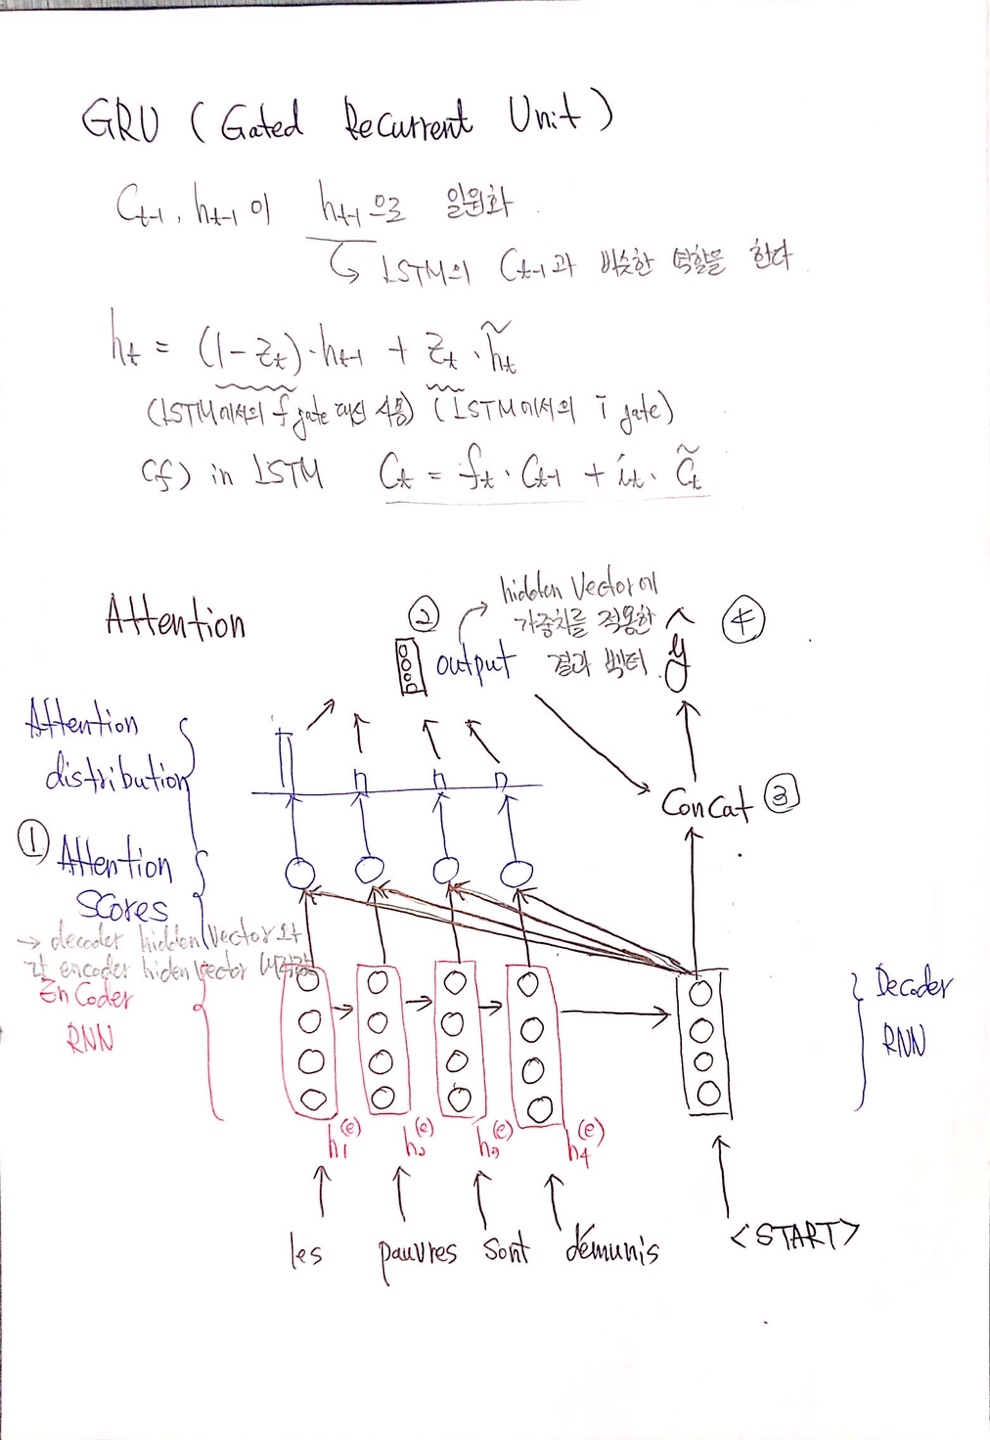 GRU (Gated Recurrent Unit)
Ct-1, ht-1 이 ht-1으로 일원화.
LSTM의 Ct-1과 비슷한 역할을 한다.
ht = (1-zt)·ht-1 + zt·h̃t
(LSTM에서의 f gate 대신 사용) (LSTM에서의 i gate)
cf) in LSTM Ct = ft·Ct-1 + it·C̃t
Attention
② hidden Vector에
가중치를 적용한
output 결과 벡터.
ŷ ④
Attention
distribution
Concat ③
① Attention
Scores
→ decoder hidden Vector와
각 encoder hiden vector 내적값
EnCoder
RNN
Decoder
RNN
h1(e) h2(e) h3(e) h4(e)
les pauvres sont démunis <START>